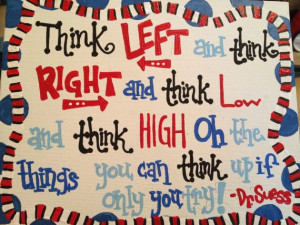 Think LEFT and think
RIGHT and think Low
and think HIGH Oh the
things you can think up if
only you try! -Dr Suess